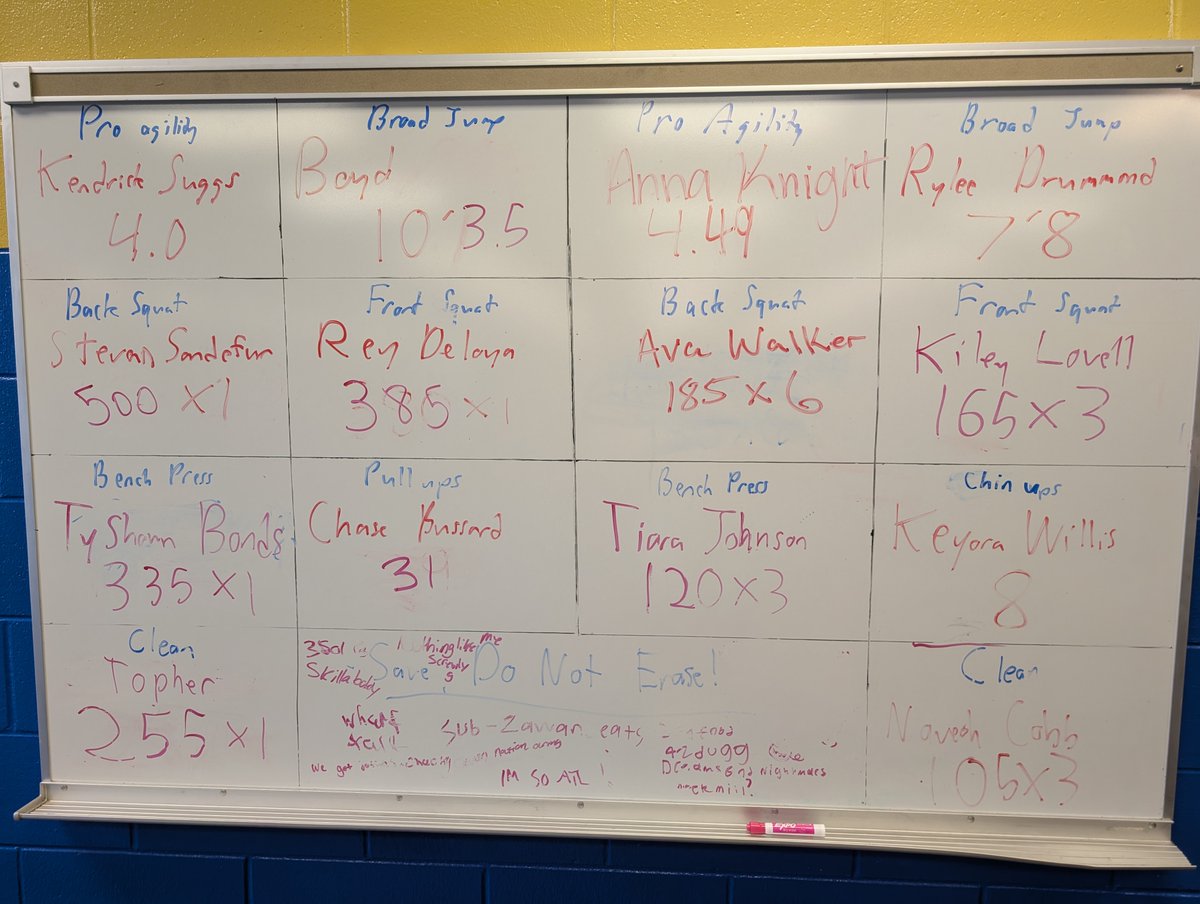 Pro agility
Kendrick Suggs
4.0
Broad Jump
Boyd
10'3.5
Pro Agility
Anna Knight
4.49
Broad Jump
Rylee Drummond
7'8
Back Squat
Stevan Sandefur
500 x 1
Front Squat
Rey Delaya
385 x 1
Back Squat
Ava Walker
185 x 6
Front Squat
Kiley Lovell
165 x 3
Bench Press
TyShawn Bonds
335 x 1
Pull ups
Chase Bussard
31
Bench Press
Tiara Johnson
120 x 3
Chin ups
Keyora Willis
8
Clean
Topher
255 x 1
Save Do Not Erase!
Skillababy
eats
We get
Dreams and nightmares
I'M SO ATL !
Clean
Naveah Cobb
105 x 3